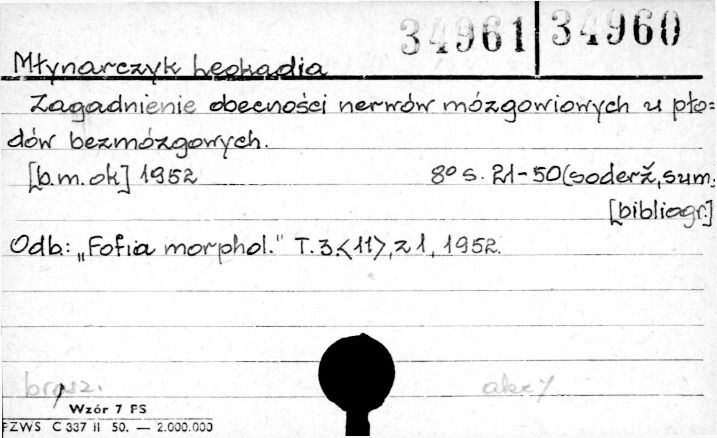 34961 34960
Młynarczyk Leokadia
Zagadnienie obecności nerwów mózgowiowych u pło=
dów bezmózgowych.
[b.m.ok] 1952 8º s. 21-50(soderž, sum.
[bibliogr.]
Odb: „Fofia morphol." T.3.<11>, z 1, 1952.
brosz. akc
Wzór 7 PS
PZWS C 337 II 50. — 2.000.000